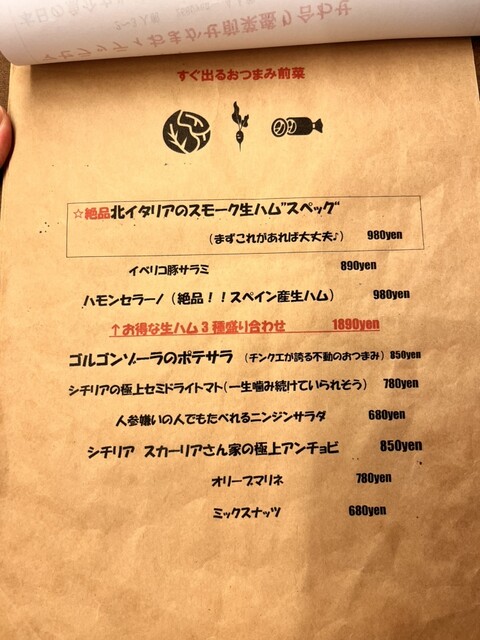 すぐ出るおつまみ前菜
☆絶品北イタリアのスモーク生ハム"スペッグ"
(まずこれがあれば大丈夫♪) 980yen
イベリコ豚サラミ 890yen
ハモンセラーノ(絶品!!スペイン産生ハム) 980yen
↑お得な生ハム3種盛り合わせ 1890yen
ゴルゴンゾーラのポテサラ (チンクエが誇る不動のおつまみ) 850yen
シチリアの極上セミドライトマト(一生噛み続けていられそう) 780yen
人参嫌いの人でもたべれるニンジンサラダ 680yen
シチリア スカーリアさん家の極上アンチョビ 850yen
オリーブマリネ 780yen
ミックスナッツ 680yen